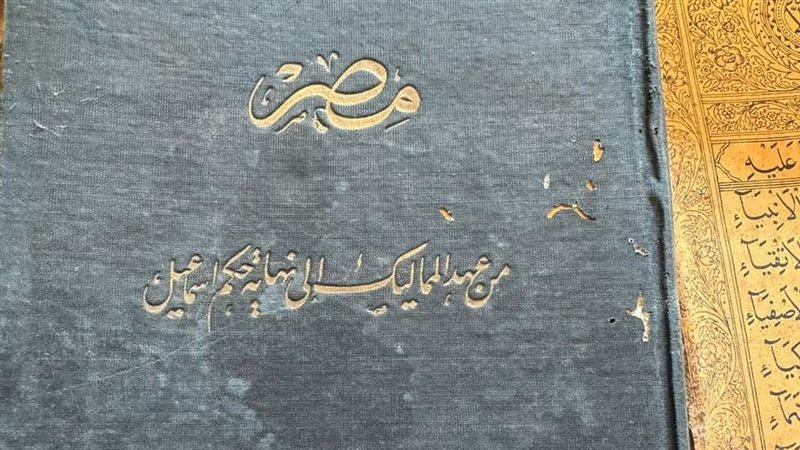 مصر
من عهد المماليك إلى نهاية حكم اسماعيل
عَلَيْهِ
الْأَنْبِيَآءِ
الْأَتْقِيَآءِ
الْأَصْفِيَآءِ